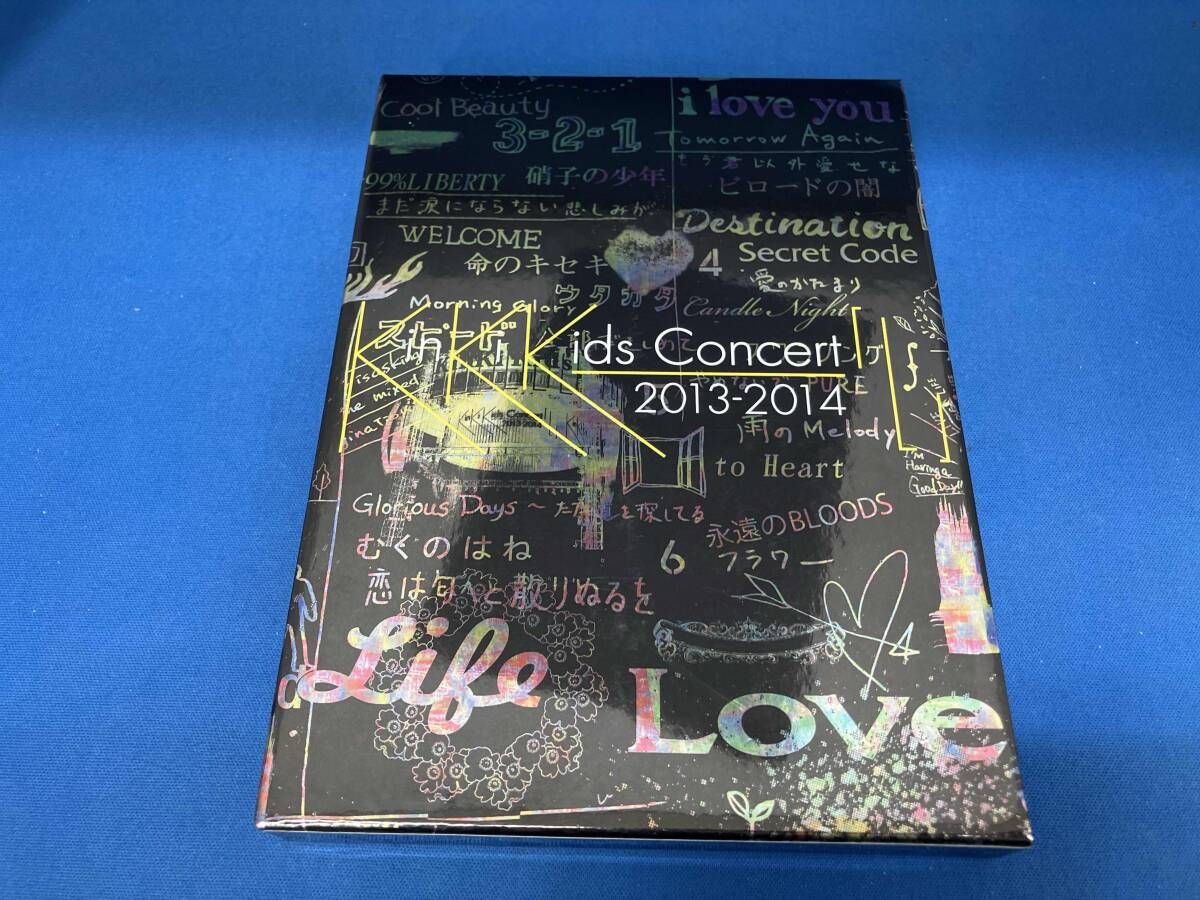 Cool Beauty
3-2-1
i love you
Tomorrow Again
もう君以外愛せな
99%LIBERTY
硝子の少年
ビロードの闇
まだ涙にならない悲しみが
Destination
WELCOME
Secret Code
命のキセキ
4
愛のかたまり
ウタカタ
Morning Glory
Candle Night
KinKi Kids Concert
2013-2014
PURE
雨のMelody
to Heart
I'm
Having a
Good Day!!
Glorious Days ～ただ道を探してる
永遠のBLOODS
むくのはね
6
フラワー
恋は匂へと散りぬるを
Life
Love